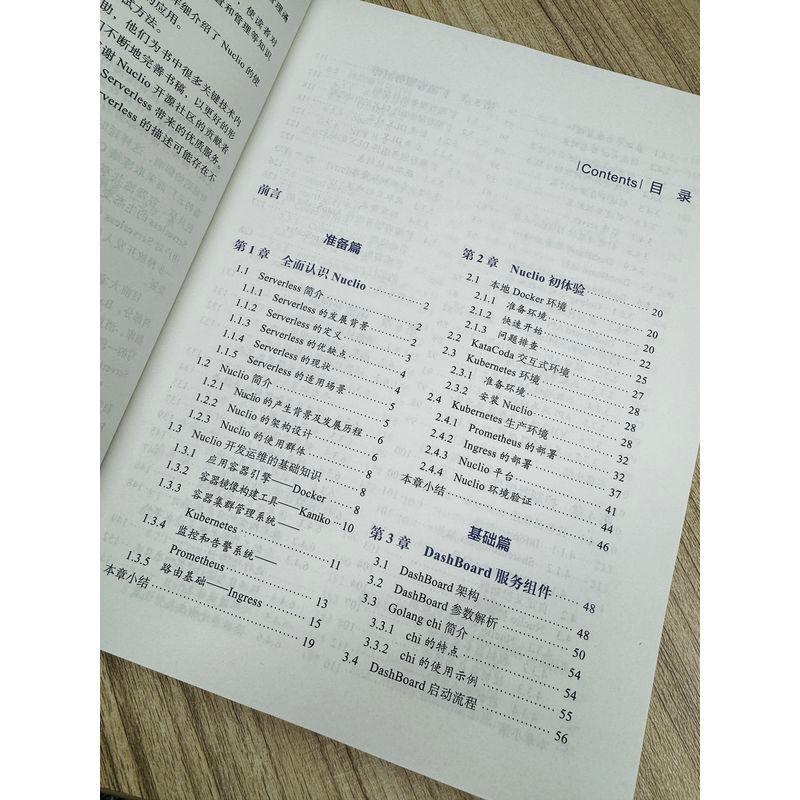 详细介绍了 Nuclio 的使
置和管理等知识
的应用。
式方法。
助，他们为书中很多关键技术内
不断地完善书稿，以更好的形
谢 Nuclio 开源社区的贡献者
Serverless 带来的优质服务。
Serverless 的描述可能存在不
|Contents| 目 录
前言
准备篇
第 1 章 全面认识 Nuclio ………… 2
1.1 Serverless 简介 ………… 2
1.1.1 Serverless 的发展背景 ………… 2
1.1.2 Serverless 的定义 ………… 3
1.1.3 Serverless 的优缺点 ………… 4
1.1.4 Serverless 的现状 ………… 4
1.1.5 Serverless 的适用场景 ………… 5
1.2 Nuclio 简介 ………… 5
1.2.1 Nuclio 的产生背景及发展历程 ………… 6
1.2.2 Nuclio 的架构设计 ………… 6
1.2.3 Nuclio 的使用群体 ………… 8
1.3 Nuclio 开发运维的基础知识 ………… 8
1.3.1 应用容器引擎——Docker ………… 8
1.3.2 容器镜像构建工具——Kaniko … 10
1.3.3 容器集群管理系统——
Kubernetes ………… 11
1.3.4 监控和告警系统——
Prometheus ………… 13
1.3.5 路由基础——Ingress ………… 15
本章小结 ………… 19
第 2 章 Nuclio 初体验 ………… 20
2.1 本地 Docker 环境 ………… 20
2.1.1 准备环境 ………… 20
2.1.2 快速开始 ………… 22
2.1.3 问题排查 ………… 25
2.2 KataCoda 交互式环境 ………… 27
2.3 Kubernetes 环境 ………… 28
2.3.1 准备环境 ………… 28
2.3.2 安装 Nuclio ………… 28
2.4 Kubernetes 生产环境 ………… 32
2.4.1 Prometheus 的部署 ………… 32
2.4.2 Ingress 的部署 ………… 37
2.4.3 Nuclio 平台 ………… 41
2.4.4 Nuclio 环境验证 ………… 44
本章小结 ………… 46
基础篇
第 3 章 DashBoard 服务组件 ………… 48
3.1 DashBoard 架构 ………… 48
3.2 DashBoard 参数解析 ………… 50
3.3 Golang chi 简介 ………… 54
3.3.1 chi 的特点 ………… 54
3.3.2 chi 的使用示例 ………… 55
3.4 DashBoard 启动流程 ………… 56